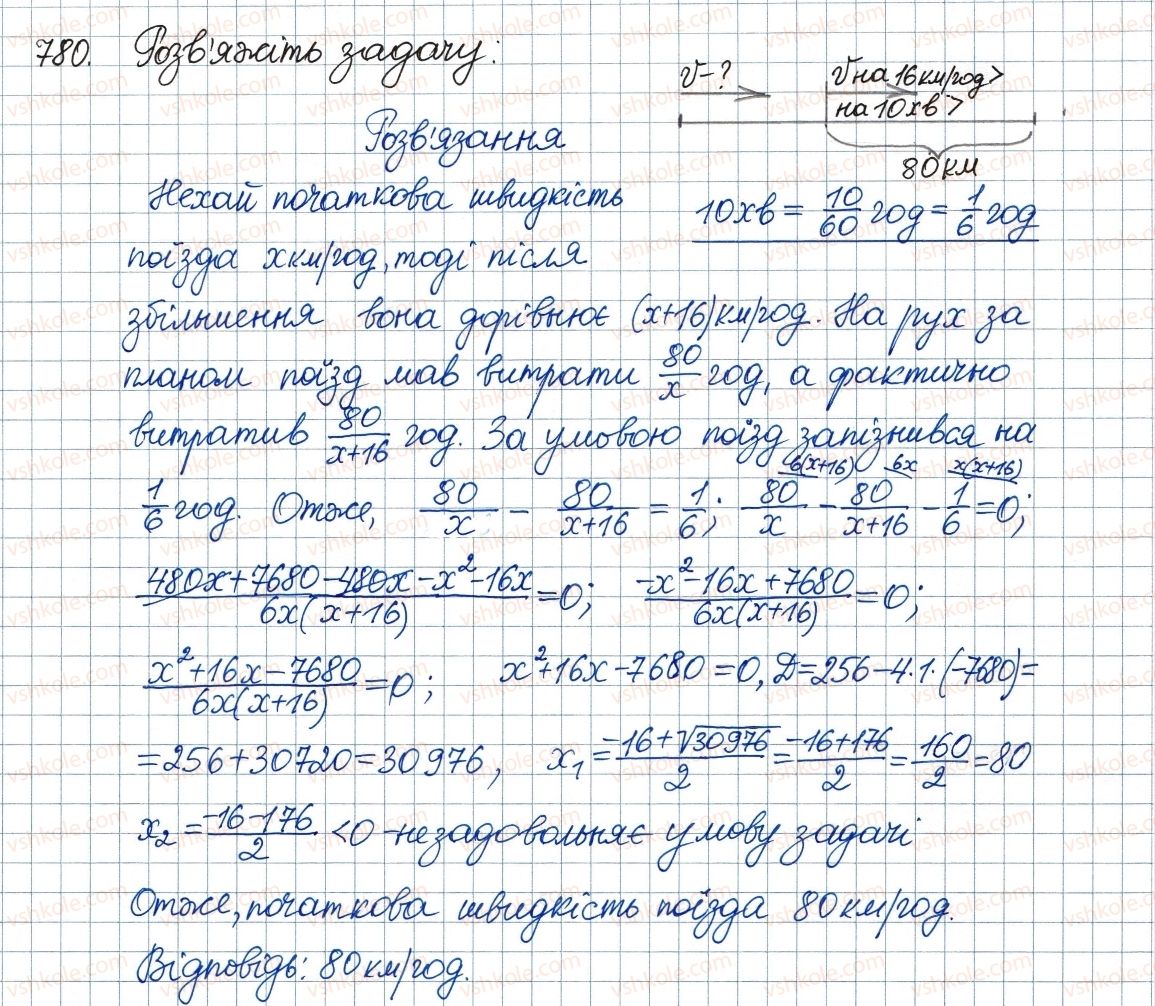 780. Розв'яжіть задачу:
v-? v на 16км/год>
на 10хв>
80км
Розв'язання
Нехай початкова швидкість
10хв = 10/60 год = 1/6 год
поїзда x км/год, тоді після
збільшення вона дорівнює (x+16)км/год. На рух за
планом поїзд мав витрати 80/x год, а фактично
витратив 80/(x+16) год. За умовою поїзд запізнився на
1/6 год. Отже, 80/x - 80/(x+16) = 1/6; 6(x+16) 80/x - 6x 80/(x+16) - x(x+16) 1/6 = 0;
(480x+7680-480x-x²-16x)/(6x(x+16)) = 0; (-x²-16x+7680)/(6x(x+16)) = 0;
(x²+16x-7680)/(6x(x+16)) = 0; x²+16x-7680=0, D=256-4·1·(-7680)=
=256+30720=30976, x₁=(-16+√30976)/2=(-16+176)/2=160/2=80
x₂=(-16-176)/2 <0 -незадовольняє умову задачі
Отже, початкова швидкість поїзда 80км/год.
Відповідь: 80км/год.
vshkole.com